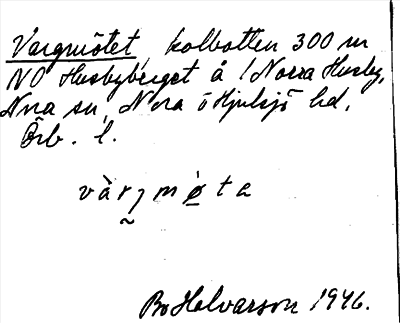 Vargmötet, kolbotten 300 m
NO Husbyberget å /Norra Husby,
Nora sn, Nora o Hjulsjö hd,
Örb. l.
vàrgmøta
Bo Halvarson 1946.